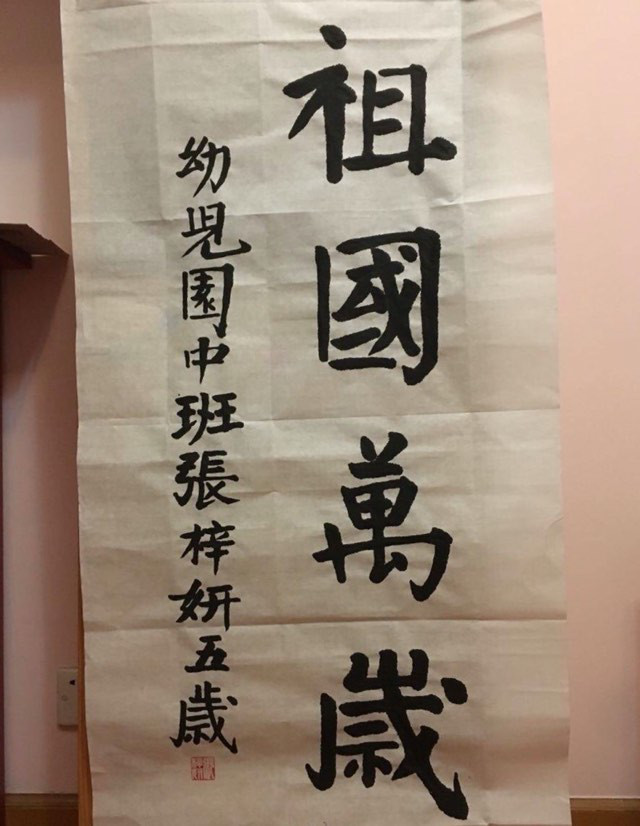 祖國萬歲
幼兒園中班張梓妍五歲